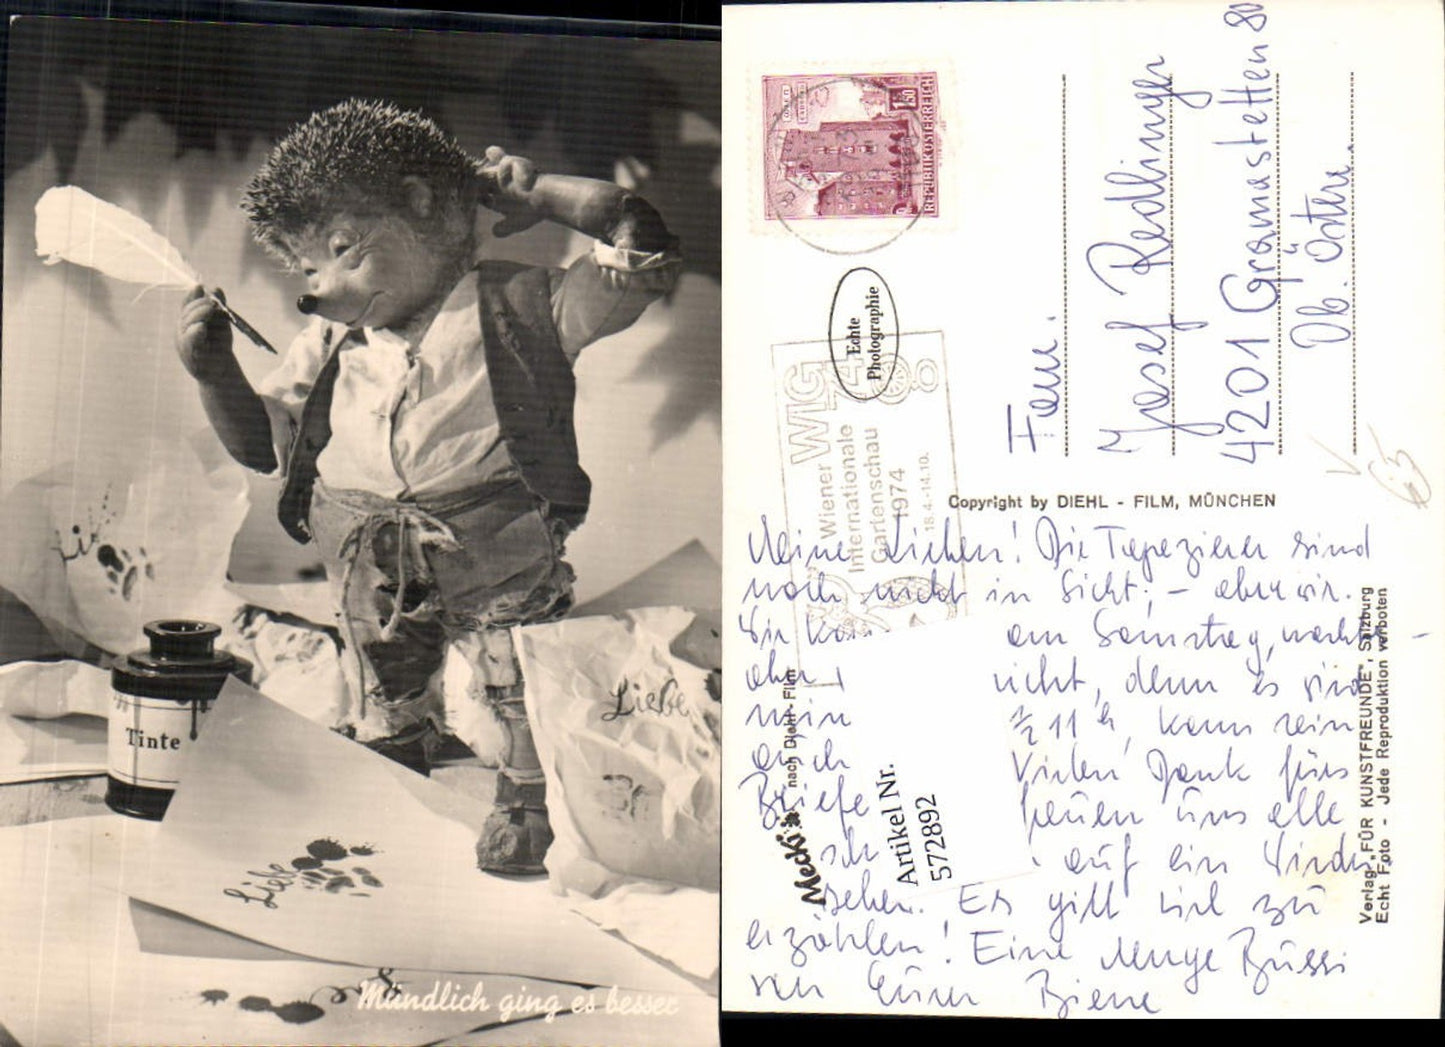 Liebe
Tinte
Liebe
Mündlich ging es besser
REPUBLIK ÖSTERREICH
1.50
Echte
Photographie
WIG 74
Wiener
Internationale
Gartenschau
1974
18.4.-14.10.
Fam.
Josef Redlinger
4201 Gramastetten 80
Ob. Österr.
Copyright by DIEHL - FILM, MÜNCHEN
Meine Lieben! Die Tapezierer sind
noch nicht in Sicht, - aber wir.
Wir am Samstag,
aber nicht, denn es sind
½ 11 h, kann sein
auch Vielen Dank fürs
Briefe freuen uns alle
sch auf ein Wieder-
sehen. Es gibt viel zu
erzählen! Eine Menge Bussi
von Eurer Biene
Mecki nach Diehl-Film
Artikel Nr.
572892
Verlag „FÜR KUNSTFREUNDE", Salzburg
Echt Foto - Jede Reproduktion verboten